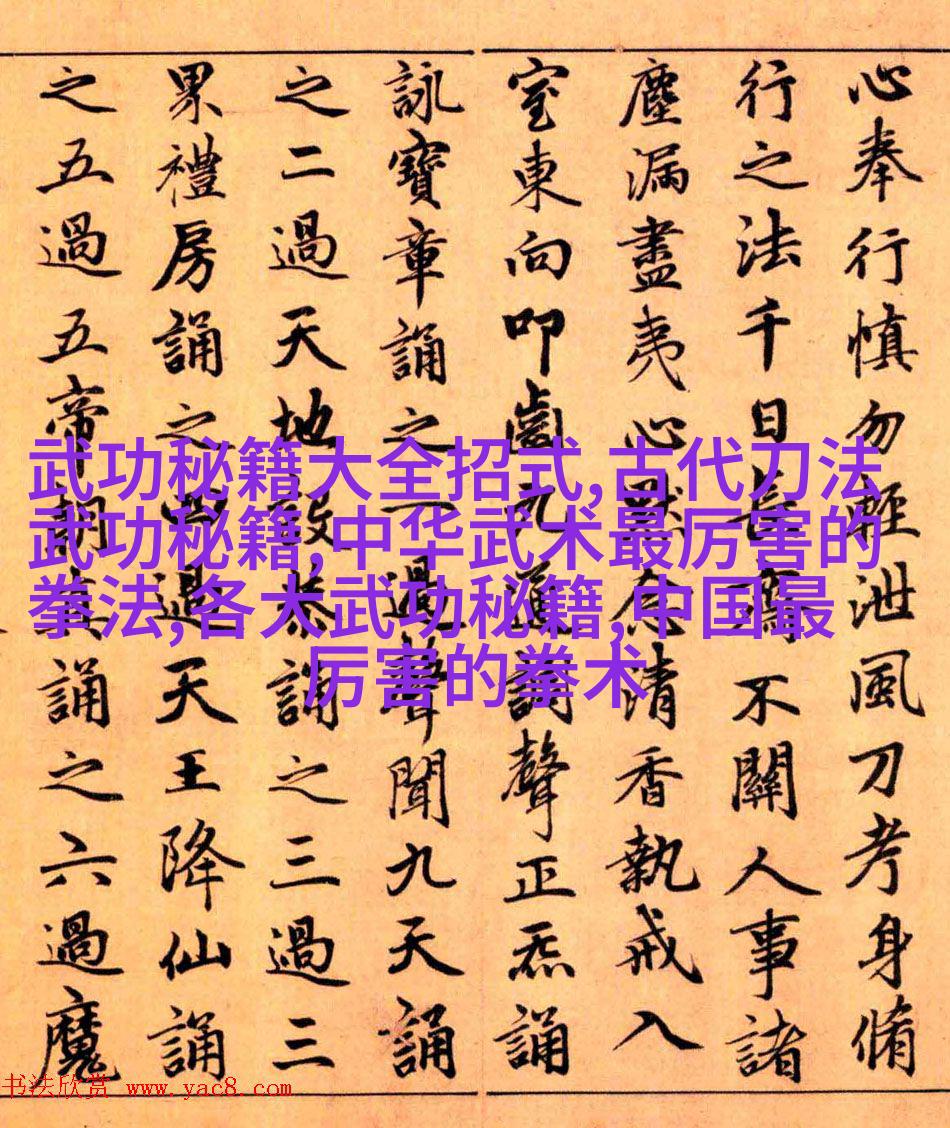 心奉行慎勿輕泄風刀考身脩
行之法千日長齋不關人事諸
塵漏盡夷心默念清香執戒入
室東向叩齒九通調聲正炁誦
詠寶章誦之一過聲聞九天誦
之二過天地設恭誦之三過三
累禮房誦之四過天王降仙誦
之五過五帝朝真誦之六過魔
武功秘籍大全招式,古代刀法
武功秘籍,中华武术最厉害的
拳法,各大武功秘籍,中国最
厉害的拳术
书法欣赏 www.yac8.com